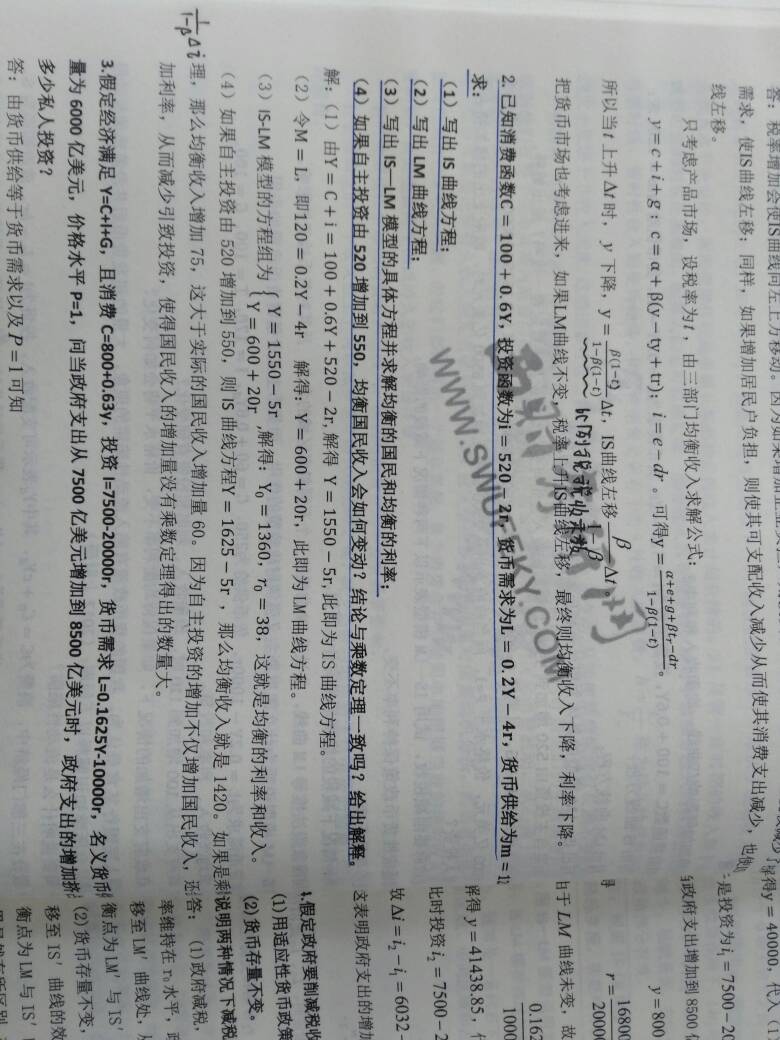 答：税率增加会使IS曲线向左上方移动。因为
需求，使IS曲线左移；同样，如果增加居民户负担，则使其可支配收入减少从而使其消费支出减少，也
线左移。
只考虑产品市场，设税率为t，由三部门均衡收入求解公式：
y=c+i+g；c=α+β(y−ty+tr)；i=e−dr。可得y=(α+e+g+βtr−dr)/(1−β(1−t))。
所以当t上升Δt时，y下降，y=β(1−t)/(1−β(1−t))Δt，IS曲线左移β/(1−β)Δt。
把货币市场也考虑进来，如果LM曲线不变，税率上升IS曲线左移，最终则均衡收入下降，利率下降。
2. 已知消费函数C=100+0.6Y，投资函数为i=520−2r，货币需求为L=0.2Y−4r，货币供给为m=12
求：
（1）写出 IS 曲线方程；
（2）写出 LM 曲线方程；
（3）写出 IS—LM 模型的具体方程并求解均衡的国民和均衡的利率；
（4）如果自主投资由 520 增加到 550，均衡国民收入会如何变动？结论与乘数定理一致吗？给出解释。
解：（1）由Y=C+i=100+0.6Y+520−2r,解得 Y=1550−5r,此即为 IS 曲线方程。
（2）令M=L，即120=0.2Y−4r 解得：Y=600+20r，此即为 LM 曲线方程。
（3）IS-LM 模型的方程组为{Y=1550−5r
Y=600+20r ,解得：Y₀=1360，r₀=38，这就是均衡的利率和收入。
（4）如果自主投资由 520 增加到 550，则 IS 曲线方程Y=1625−5r，那么均衡收入就是 1420。如果是乘
理，那么均衡收入增加 75，这大于实际的国民收入增加量 60。因为自主投资的增加不仅增加国民收入，还
加利率，从而减少引致投资，使得国民收入的增加量没有乘数定理得出的数量大。
1/(1−β) Δi
3.假定经济满足 Y=C+I+G，且消费 C=800+0.63y，投资 I=7500-20000r，货币需求 L=0.1625Y-10000r，名义货币
量为 6000 亿美元，价格水平 P=1，问当政府支出从 7500 亿美元增加到 8500 亿美元时，政府支出的增加挤
多少私人投资？
答：由货币供给等于货币需求以及P=1可知
WWW.SWUFEKY.COM
解得y=40000，代入（1
是投资为i₁=7500−20
当政府支出增加到 8500 亿
y=800
r=16800
20000
由于 LM 曲线未变，故
0.162
1000
解得 y=41438.85，
此时投资i₂=7500−2
故Δi=i₂−i₁=6032−
这表明政府支出的增加
4.假定政府要削减税收
(1)用适应性货币政策
(2)货币存量不变。
说明两种情况下减税
答：（1）政府减税，
率维持在 r₀ 水平，政
移至 LM′ 曲线处，从
衡点为 LM′ 与 IS′
（2）货币存量不变，
移至 IS′ 曲线的效
衡点为 LM 与 IS′